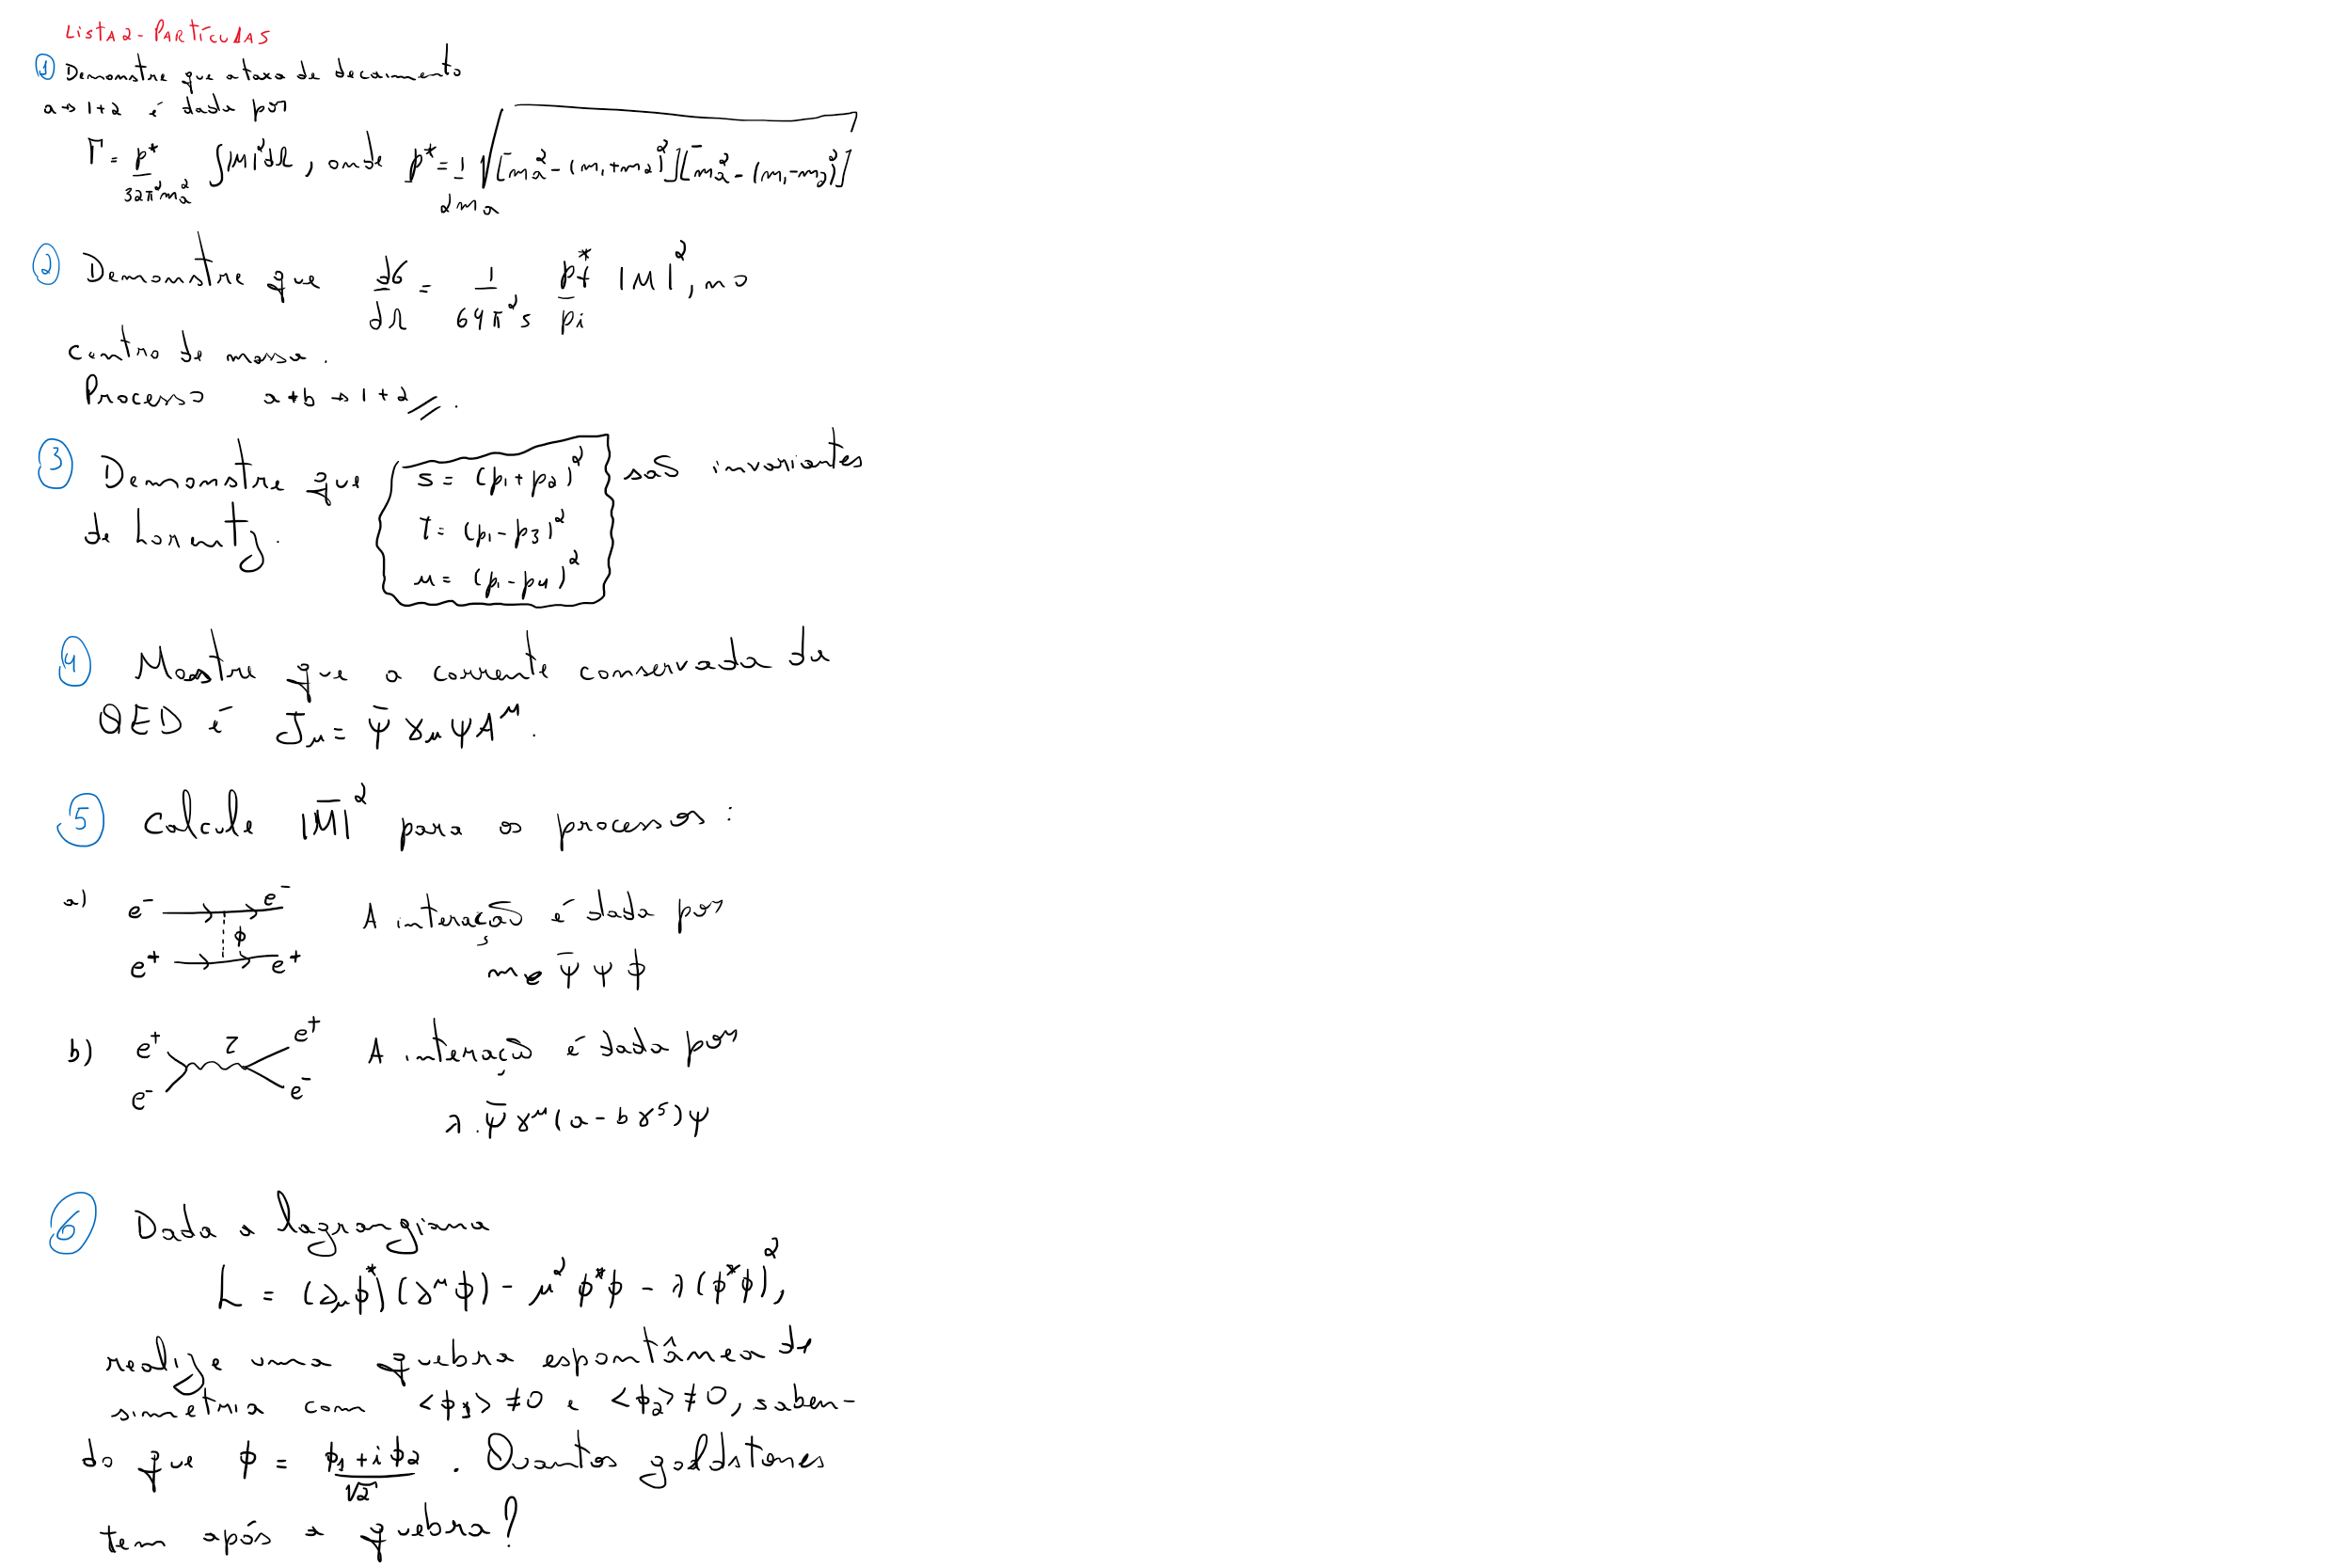 Lista 2 - Partículas
① Demonstre que a taxa de decaimento
a → 1+2 é dada por
Γ = p*/(32π²mₐ²) ∫|M|²dΩ, onde p* = 1/(2mₐ) √([mₐ² - (m₁+m₂)²][mₐ² - (m₁-m₂)²])
② Demonstre que dσ/dΩ = 1/(64π²s) pf*/pi |M|², no
centro de massa.
Processo a+b → 1+2 //.
③ Demonstre que s = (p₁+p₂)² são invariantes
t = (p₁-p₃)²
u = (p₁-p₄)²
de Lorentz.
④ Mostre que a corrente conservada da
QED é Jμ = ψ̄ γμ ψ A^μ.
⑤ Calcule |M̄|² para os processos:
a) e⁻ e⁻ A interação é dada por
ϕ
e⁺ e⁺
me ψ̄ ψ ϕ
b) e⁺ Z e⁺ A interação é dada por
e⁻ e⁻
λ.ψ̄ γ^μ (a - bγ⁵)ψ
⑥ Dada a lagrangiana
L = (∂μϕ*)(∂^μϕ) - μ²ϕ*ϕ - λ(ϕ*ϕ)²,
realize uma quebra espontânea de
simetria com <ϕ₁> ≠ 0 e <ϕ₂> ≠ 0, saben-
do que ϕ = (ϕ₁ + iϕ₂)/√2. Quantos goldstones
tem após a quebra?